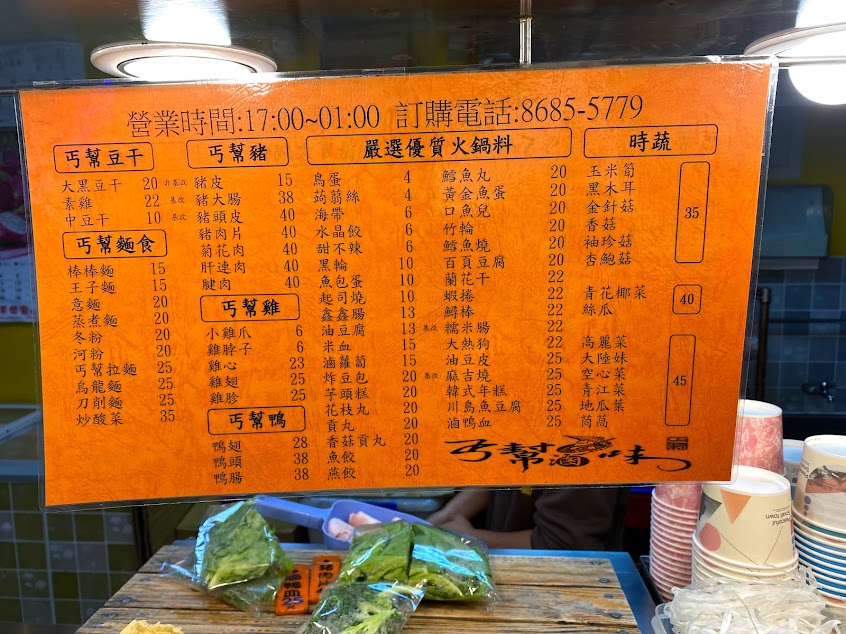 營業時間:17:00~01:00 訂購電話:8685-5779
丐幫豆干
大黑豆干 20 非基改
素雞 22 基改
中豆干 10 基改
丐幫麵食
棒棒麵 15
王子麵 15
意麵 20
蒸煮麵 20
冬粉 20
河粉 20
丐幫拉麵 25
烏龍麵 25
刀削麵 25
炒酸菜 35
丐幫豬
豬皮 15
豬大腸 38
豬頭皮 40
豬肉片 40
菊花肉 40
肝連肉 40
腱肉 40
丐幫雞
小雞爪 6
雞脖子 6
雞心 23
雞翅 25
雞胗 25
丐幫鴨
鴨翅 28
鴨頭 38
鴨腸 38
嚴選優質火鍋料
鳥蛋 4
蒟蒻絲 4
海帶 6
水晶餃 6
甜不辣 6
黑輪 10
魚包蛋 10
起司燒 10
鑫鑫腸 13
油豆腐 13 基改
米血 15
滷蘿蔔 15
炸豆包 20 基改
芋頭糕 20
花枝丸 20
貢丸 20
香菇貢丸 20
魚餃 20
燕餃 20
鱈魚丸 20
黃金魚蛋 20
口魚兒 20
竹輪 20
鱈魚燒 20
百頁豆腐 20
蘭花干 22
蝦捲 22
鱘棒 22
糯米腸 22
大熱狗 22
油豆皮 25
麻吉燒 25
韓式年糕 25
川島魚豆腐 25
滷鴨血 25
時蔬
玉米筍
黑木耳
金針菇
香菇
袖珍菇
杏鮑菇
35
青花椰菜
絲瓜
40
高麗菜
大陸妹
空心菜
青江菜
地瓜葉
茼蒿
45
丐幫滷味